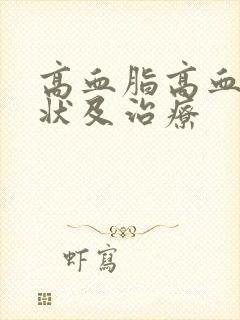 高血脂高血
状及治療
虾寫